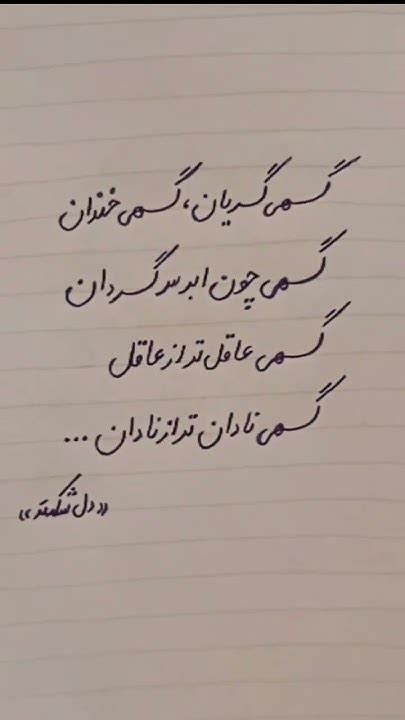 گهی گریان، گهی خندان
گهی چون ابر سرگردان
گهی عاقل تر از عاقل
گهی نادان تر از نادان ...
«دل شکسته»